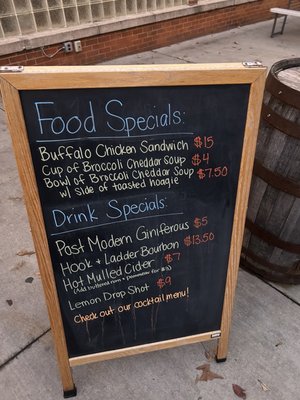 Food Specials:
Buffalo Chicken Sandwich $15
Cup of Broccoli Cheddar Soup $4
Bowl of Broccoli Cheddar Soup $7.50
w/ side of toasted hoagie
Drink Specials:
Post Modern Giniferous $5
Hook + Ladder Bourbon $13.50
Hot Mulled Cider $7
(Add buttered rum + for $3)
Lemon Drop Shot $9
Check out our cocktail menu!